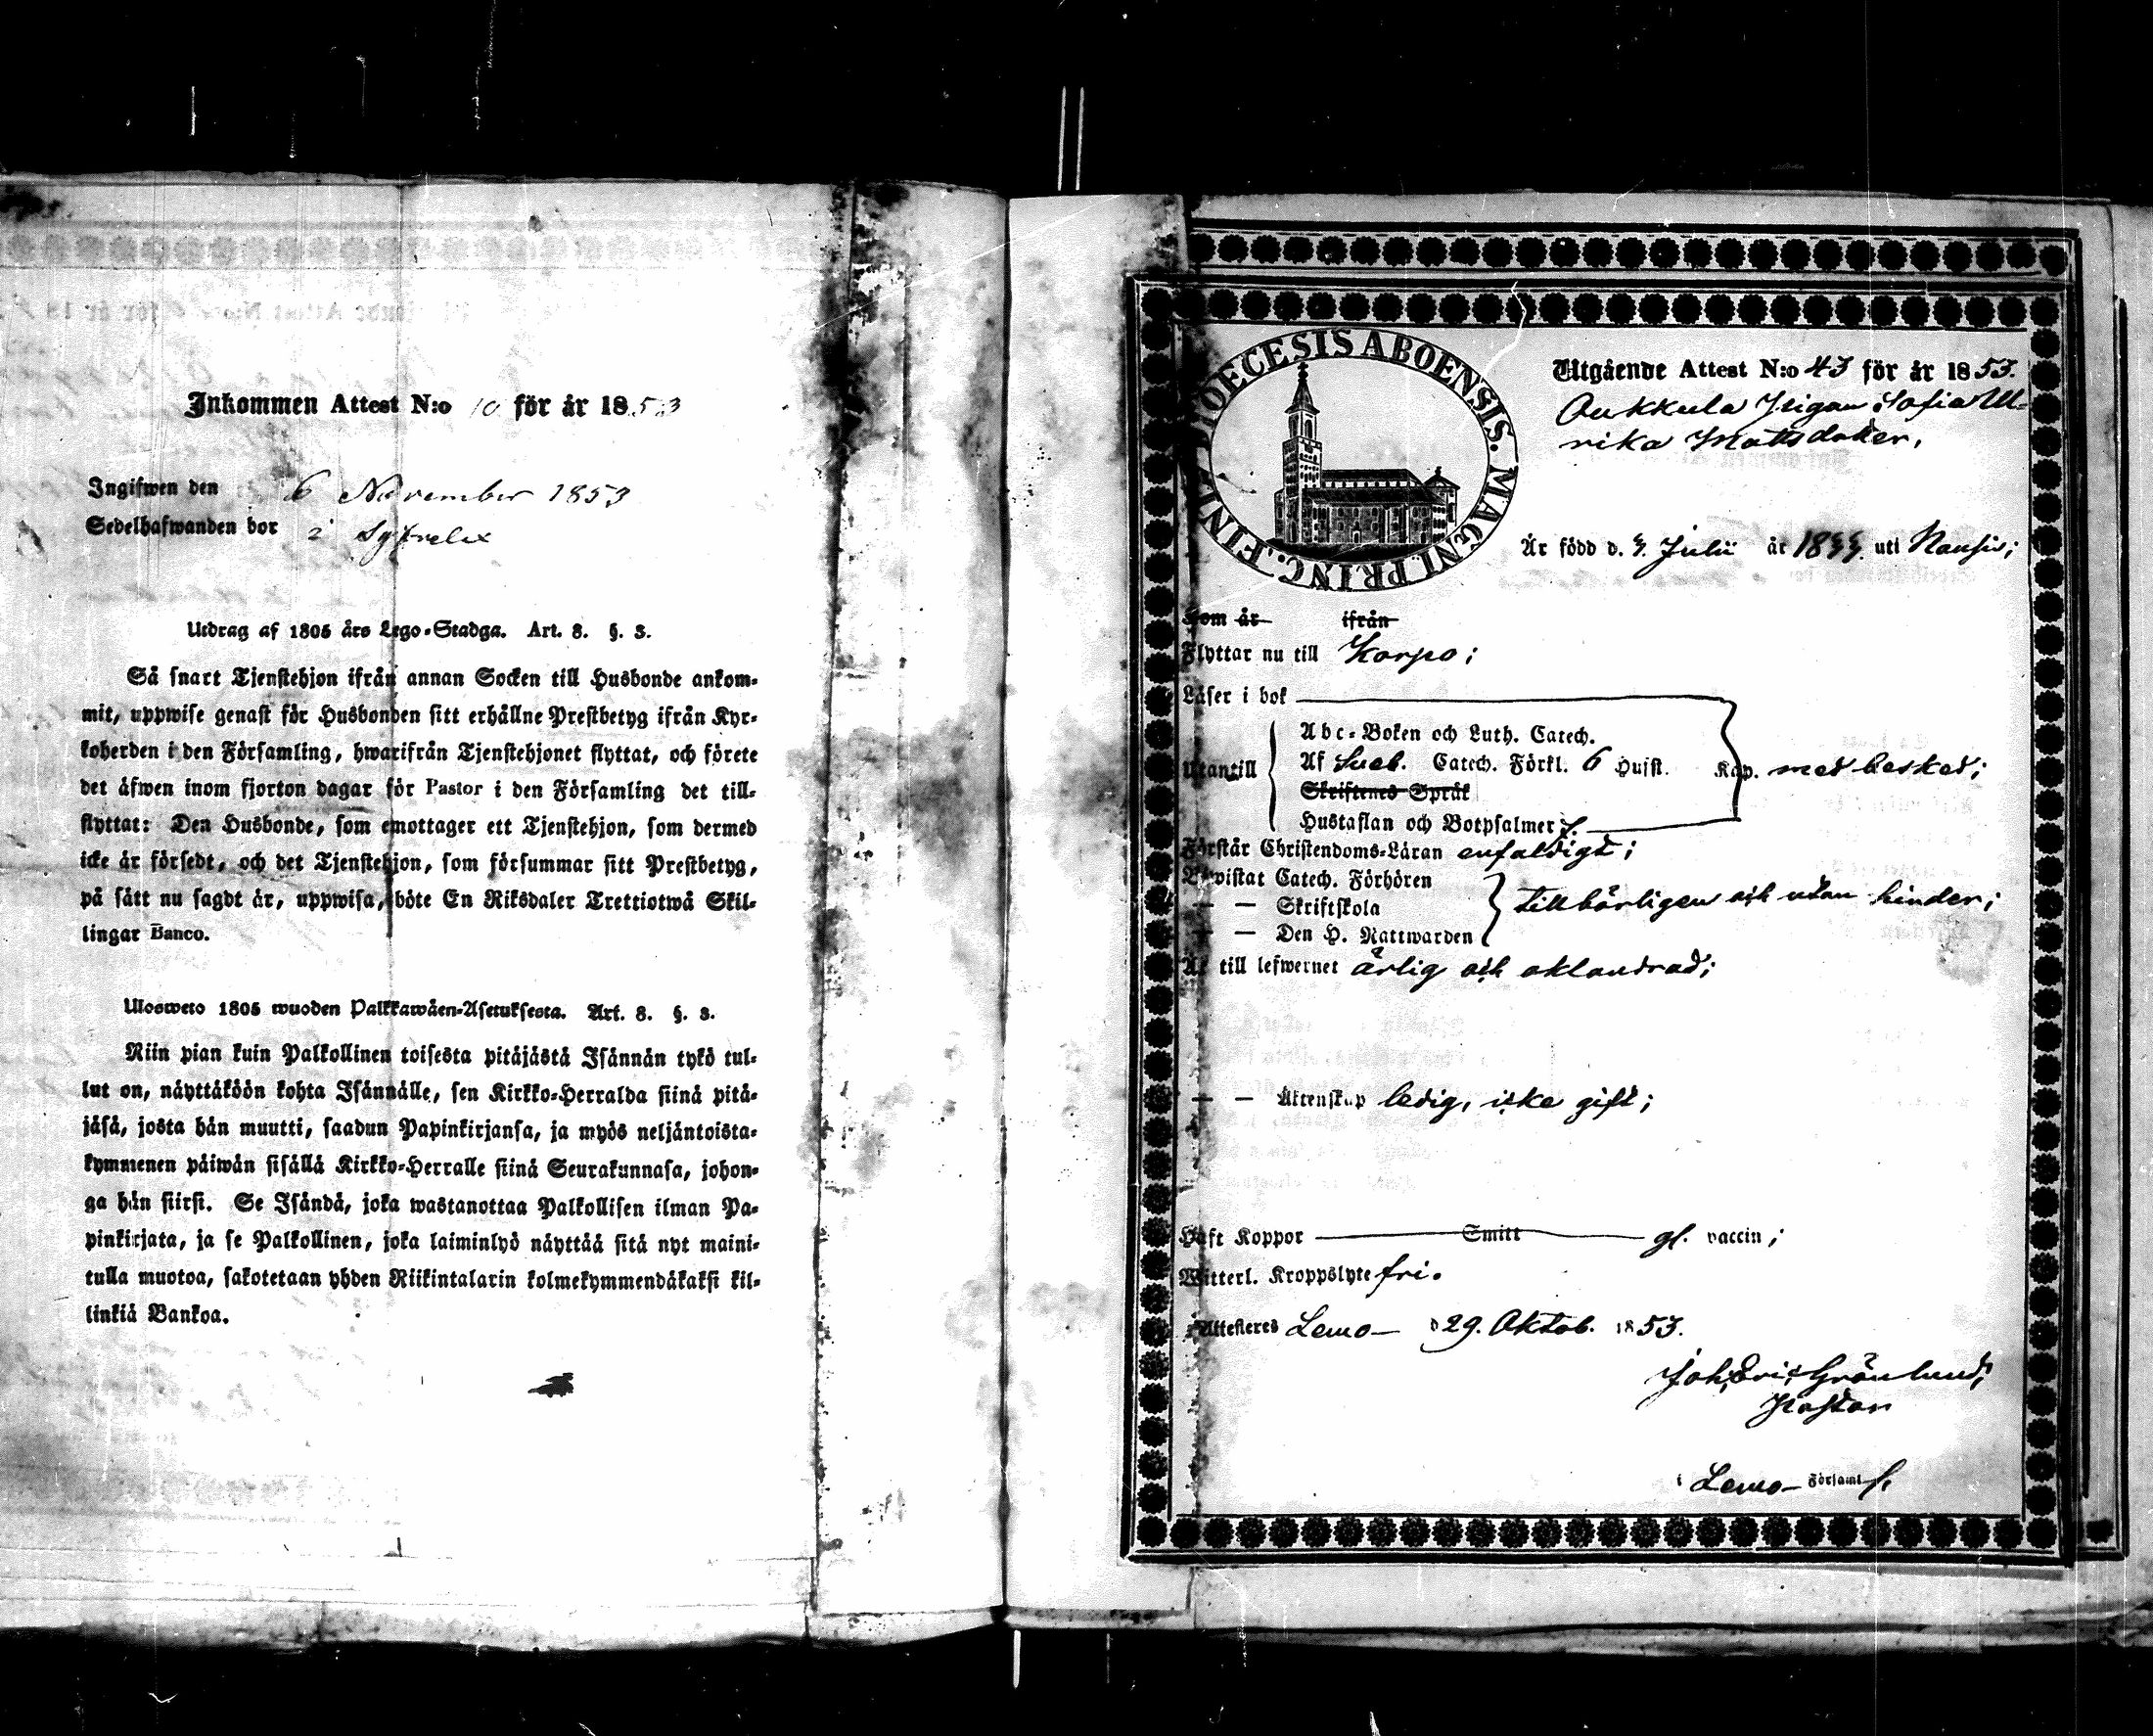 Inkommen Attest N:o 10 för år 1853
Ingifwen den 6 November 1853
Sedelhafwanden bor i
Utdrag af 1805 års Lego-Stadga. Art. 8. §. 3.
Så snart Tjenstehjon ifrån annan Socken till Husbonde ankom-
mit, uppwise genast för Husbonden sitt erhållne Prestbetyg ifrån Kyr-
koherden i den Församling, hwarifrån Tjenstehjonet flyttat, och förete
det äfwen inom fjorton dagar för Pastor i den Församling det till-
flyttat: Den Husbonde, som emottager ett Tjenstehjon, som dermed
icke är försedt, och det Tjenstehjon, som försummar sitt Prestbetyg,
på sätt nu sagdt är, uppwisa, böte En Riksdaler Trettiotwå Skil-
lingar Banco.
Ulosweto 1805 wuoden Palkkawäen-Asetuksesta. Art. 8. §. 3.
Niin pian kuin Palkollinen toisesta pitäjästä Isännän tykö tul-
lut on, näyttäköön kohta Isännälle, sen Kirkko-Herralda siinä pitä-
jäsä, josta hän muutti, saadun Papinkirjansa, ja myös neljäntoista-
kymmenen päiwän sisällä Kirkko-Herralle siinä Seurakunnasa, johon-
ga hän siirsi. Se Isändä, joka wastanottaa Palkollisen ilman Pa-
pinkirjata, ja se Palkollinen, joka laiminlyö näyttää sitä nyt maini-
tulla muotoa, sakotetaan yhden Riikintalarin kolmekymmendäkaksi kil-
linkiä Bankoa.
DIOECESIS ABOENSIS. MAGNI PRINC. FINL.
Utgående Attest N:o 43 för år 1853.
Aukkula Pigan Sofia Ul-
rika Mattsdotter,
Är född d. Julii år uti Nousis;
Som är ifrån
Flyttar nu till Korpo;
Läser i bok
Abc-Boken och Luth. Catech.
Utantill Af Sveb. Catech. Förkl. 6 Hufst. Kap. med besked;
Skriftenes Språk
Hustaflan och Botpsalmer
Förstår Christendoms-Läran enfaldigt;
Bewistat Catech. Förhören
— — Skriftskola tillbörligen och utan hinder;
— — Den H. Nattwarden
Är till lefwernet ärlig och oklandrad;
— — Äktenskap ledig, icke gift;
Haft Koppor Smitt gl. vaccin;
Witterl. Kroppslyte fri.
Attesteres Lemo d 29. Oktob. 1853.
Joh. Eric Grönlund,
Pastor
i Lemo Församl